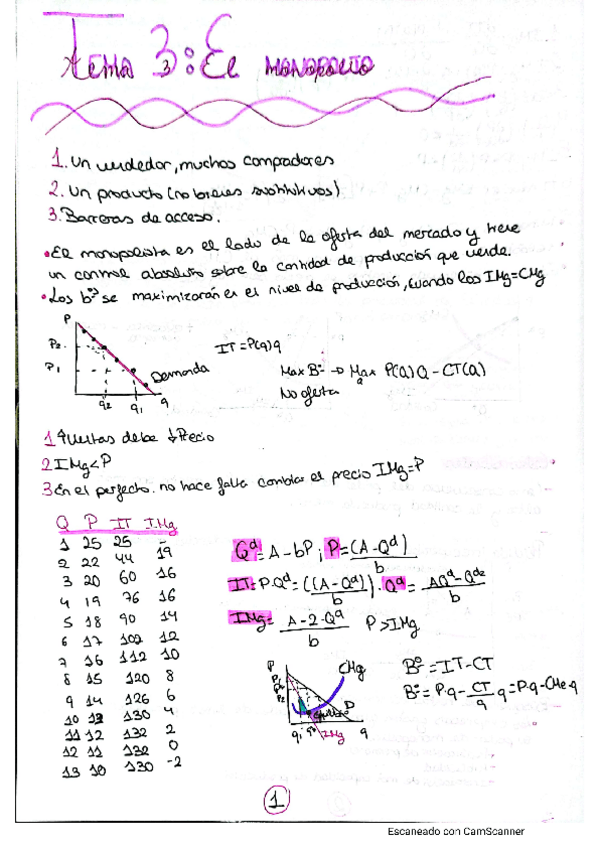 Tema 3: El monopolio
1. Un vendedor, muchos compradores
2. Un producto (no bienes sustitutivos)
3. Barreras de acceso.
• El monopolista es el lado de la oferta del mercado y tiene
un control absoluto sobre la cantidad de producción que vende.
• Los bºs se maximizarán en el nivel de producción, cuando los IMg=CMg
P
P2
P1
Demanda
q2 q1 q
IT=P(q)q
Max Bº → Max P(Q)Q - CT(Q)
q
No oferta
1 ↑Ventas debe ↓Precio
2 IMg<P
3 En el perfecto. no hace falta cambiar el precio IMg=P
Q P IT I.Mg
1 25 25 -
2 22 44 19
3 20 60 16
4 19 76 16
5 18 90 14
6 17 102 12
7 16 112 10
8 15 120 8
9 14 126 6
10 13 130 4
11 12 132 2
12 11 132 0
13 10 130 -2
Qd = A - bP ; P = (A-Qd) / b
IT = P·Qd = ((A-Qd) / b) · Qd = AQd - Qd2 / b
IMg = A - 2·Qd / b P > IMg
P
P1
P2
CMg
D
IMg
q1 q
Bº = IT - CT
Bº = P·q - CT/q q = P·q - CMe·q
1
Escaneado con CamScanner